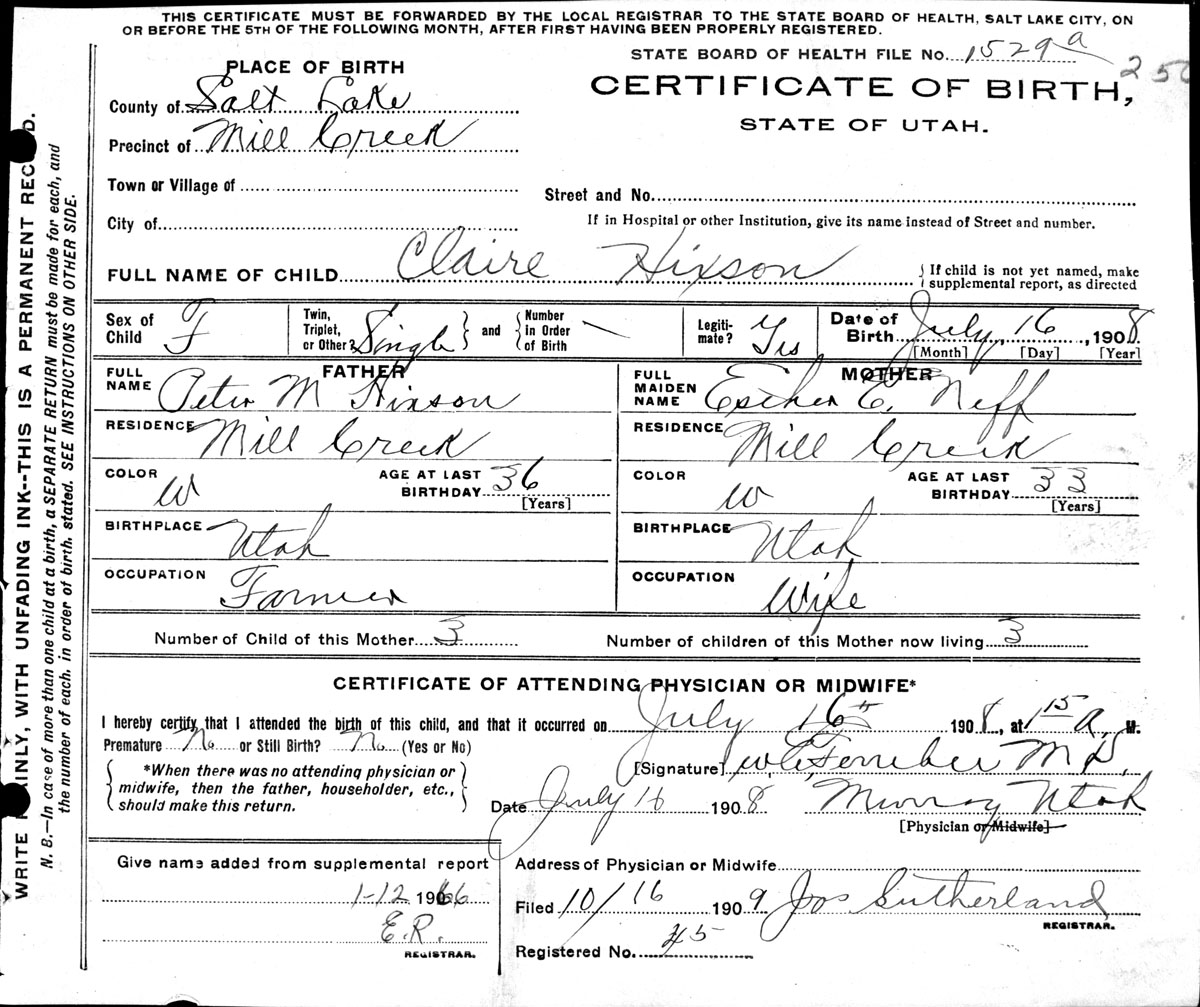 THIS CERTIFICATE MUST BE FORWARDED BY THE LOCAL REGISTRAR TO THE STATE BOARD OF HEALTH, SALT LAKE CITY, ON
OR BEFORE THE 5TH OF THE FOLLOWING MONTH, AFTER FIRST HAVING BEEN PROPERLY REGISTERED.
STATE BOARD OF HEALTH FILE No. 1529a
250
PLACE OF BIRTH
CERTIFICATE OF BIRTH,
STATE OF UTAH.
County of Salt Lake
Precinct of Mill Creek
Town or Village of
Street and No.
City of
If in Hospital or other Institution, give its name instead of Street and number.
FULL NAME OF CHILD Claire Hixson
{ If child is not yet named, make
supplemental report, as directed
Sex of Child F
Twin, Triplet, or Other? Single } and { Number in Order of Birth —
Legiti-mate? Yes
Date of Birth July 16, 1908
[Month] [Day] [Year]
FATHER
FULL NAME Peter M Hixson
RESIDENCE Mill Creek
COLOR W AGE AT LAST BIRTHDAY 36
[Years]
BIRTHPLACE Utah
OCCUPATION Farmer
MOTHER
FULL MAIDEN NAME Esther E. Neff
RESIDENCE Mill Creek
COLOR W AGE AT LAST BIRTHDAY 33
[Years]
BIRTHPLACE Utah
OCCUPATION Wife
Number of Child of this Mother 3 Number of children of this Mother now living 3
CERTIFICATE OF ATTENDING PHYSICIAN OR MIDWIFE*
I hereby certify that I attended the birth of this child, and that it occurred on July 16th 1908, at 1 15 a M.
Premature No or Still Birth? No (Yes or No)
*When there was no attending physician or
midwife, then the father, householder, etc.,
should make this return.
[Signature] M D.
Date July 16 1908 Murray Utah
[Physician or Midwife]
Give name added from supplemental report
1-12 1966
E.R.
REGISTRAR.
Address of Physician or Midwife
Filed 10/16 1909 Jos Sutherland
REGISTRAR.
Registered No. 45
WRITE PLAINLY, WITH UNFADING INK--THIS IS A PERMANENT RECORD.
N. B.—In case of more than one child at a birth, a SEPARATE RETURN must be made for each, and
the number of each, in order of birth, stated. SEE INSTRUCTIONS ON OTHER SIDE.